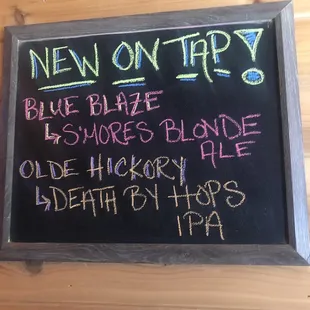 NEW ON TAP!
BLUE BLAZE
↳ S'MORES BLONDE
ALE
OLDE HICKORY
↳ DEATH BY HOPS
IPA